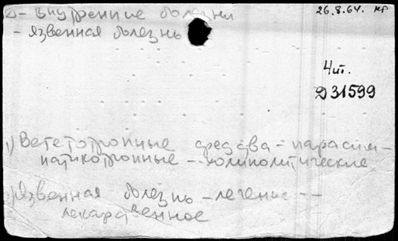 2- внутренние болезни
26.8.64. кг
- язвенная болезнь
4ит.
Д31599
1) Вегетотропные средства - парасим-
патикотропные - холинолитические
2) Язвенная болезнь - лечение --
лекарственное